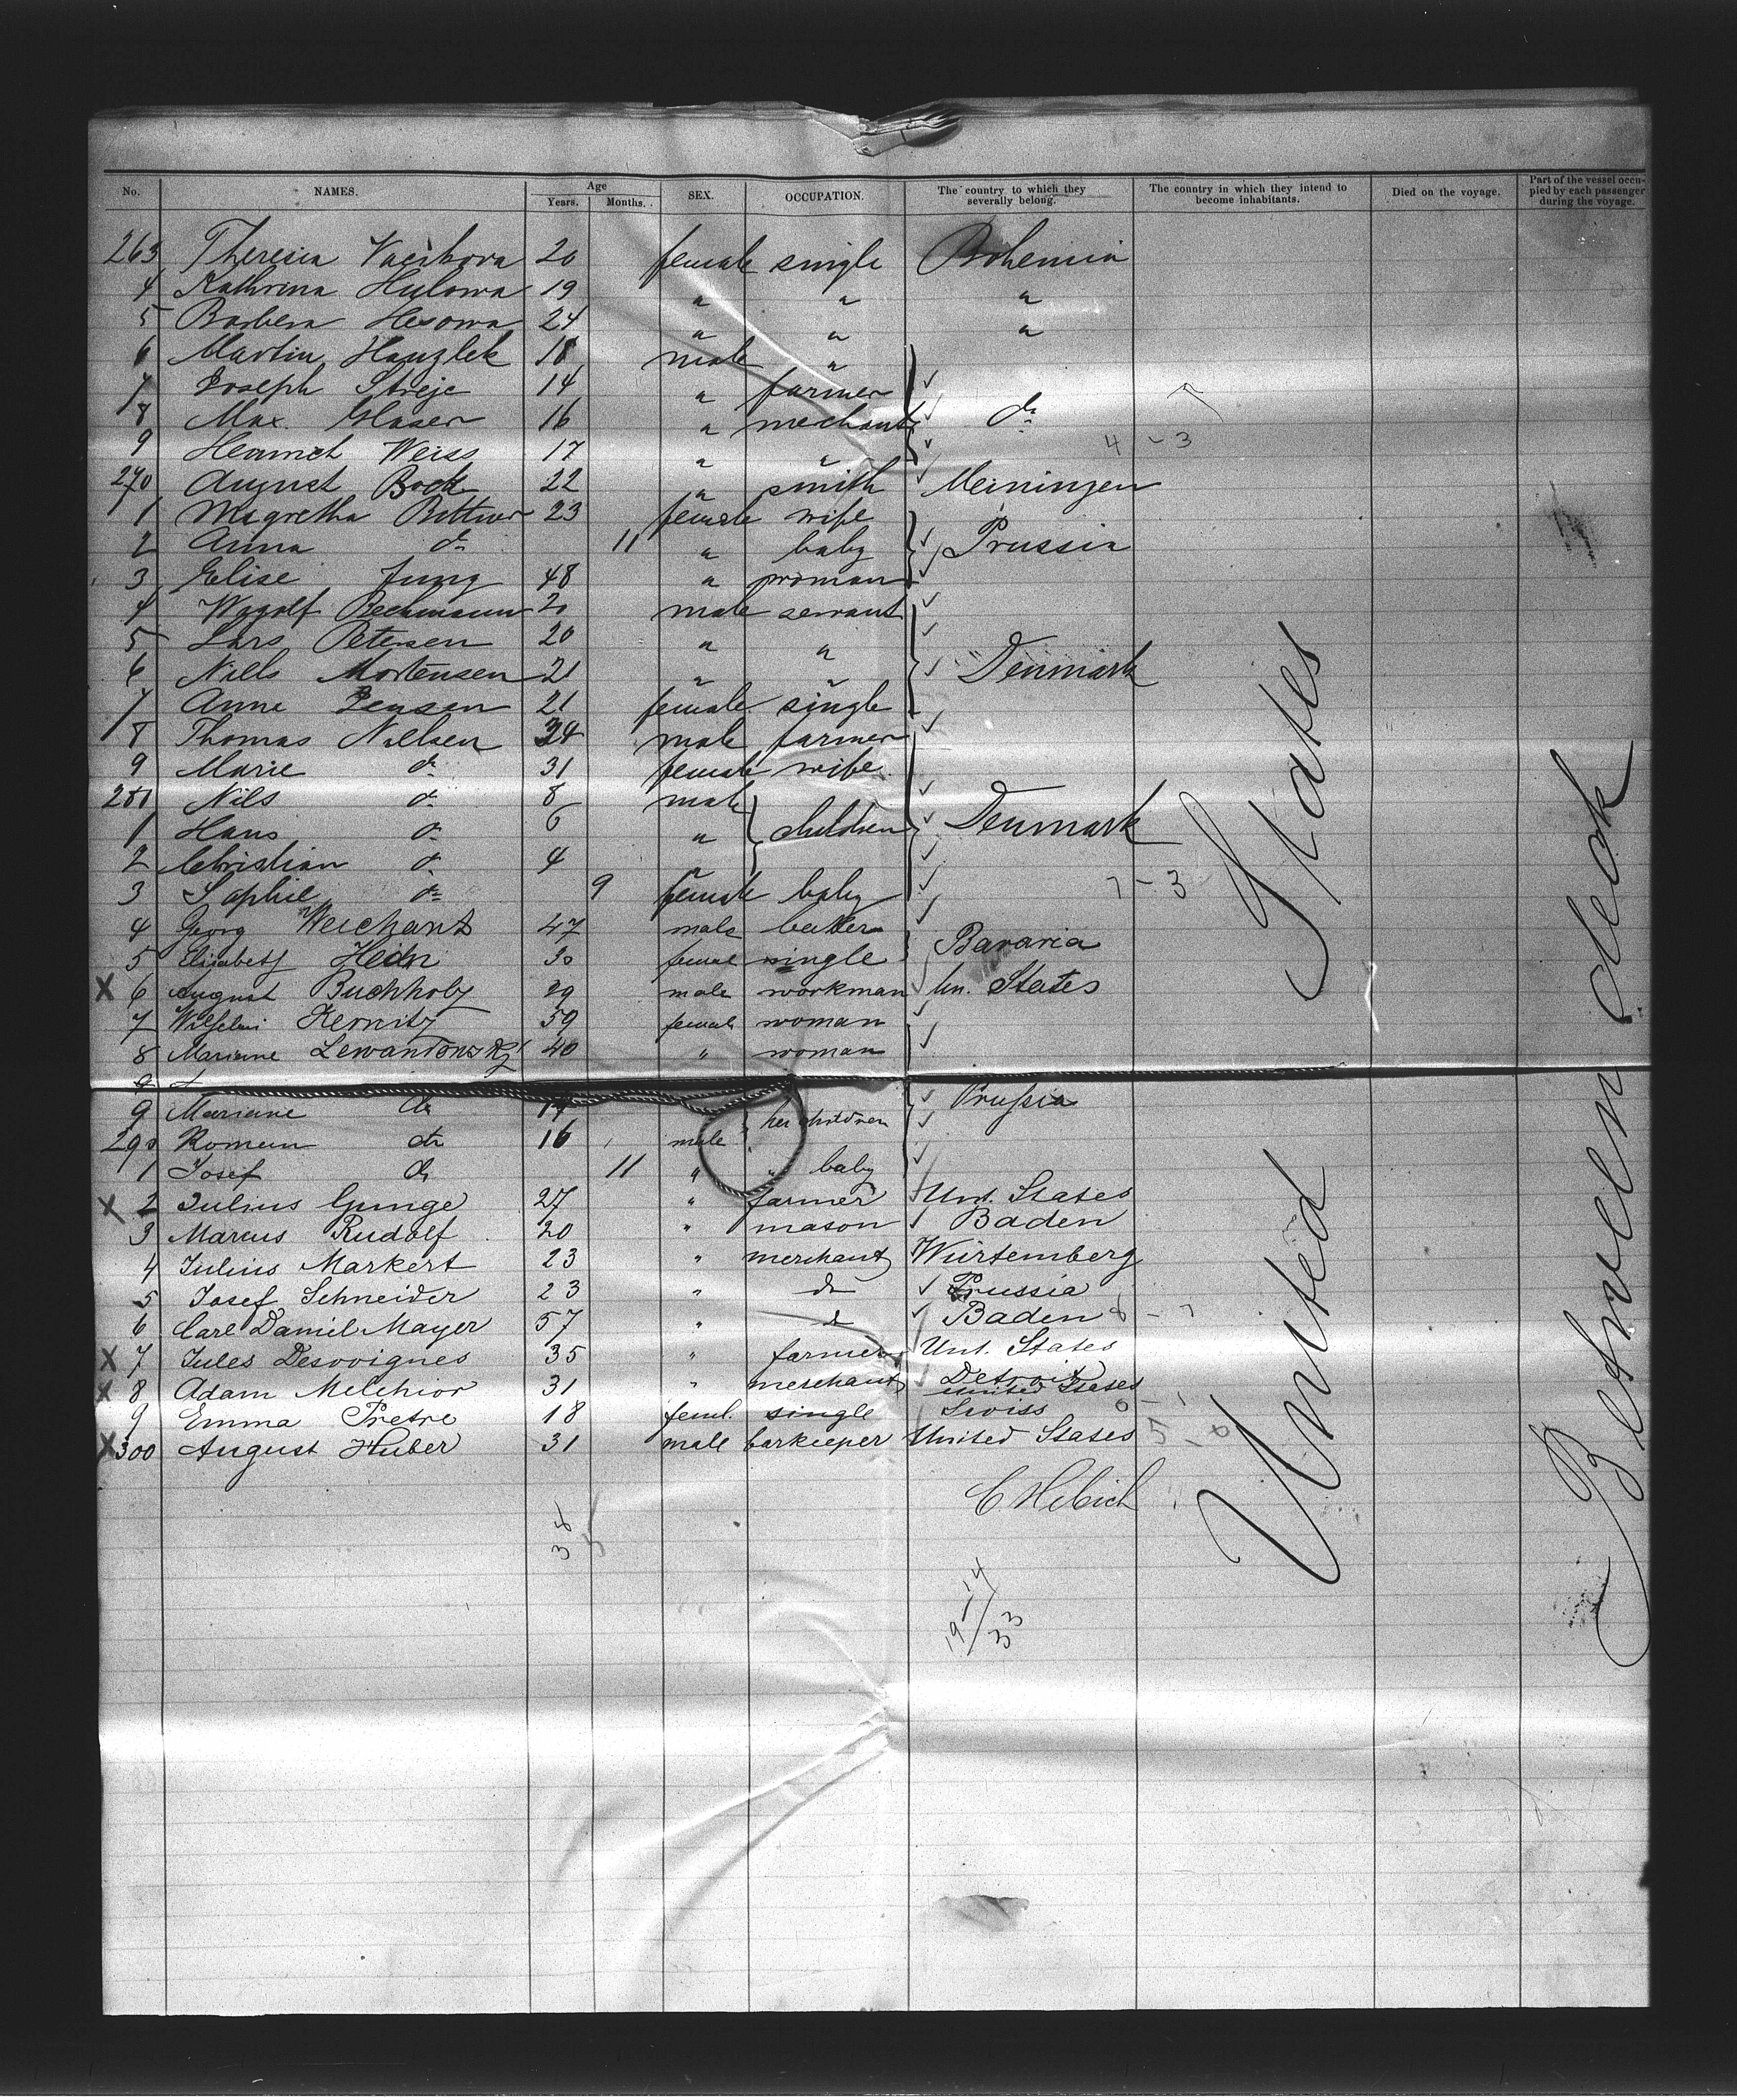 No. NAMES. Age Years. Months. SEX. OCCUPATION. The country to which they severally belong. The country in which they intend to become inhabitants. Died on the voyage. Part of the vessel occupied by each passenger during the voyage.
263 Theresia 20 female single Bohemia
4 Kathrina Hulowa 19 " " "
5 Barbera Hesowa 24 " " "
6 Martin Hanzlek 18 male "
7 Joseph Streje 14 " farmer
8 Max. Glaser 16 " mechant do
9 Heinrich Weiss 17 " " 4 - 3
270 August Bock 22 " smith Meiningen
1 Magretha Bittner 23 female wife
2 Anna do 11 " baby Prussia
3 Elise Jung 48 " woman
4 Wogolf Bechmann 20 male servant
5 Lars Petersen 20 " "
6 Niels Mortensen 21 " " Denmark
7 Anne Jensen 21 female single
8 Thomas Nielsen 34 male farmer
9 Marie do 31 female wife
281 Nils do 8 male
1 Hans do 6 " children Denmark
2 Christian do 4 "
3 Sophie do 9 female baby 7 - 3
4 Georg Weichant 47 male
5 Elisabeth Hein 30 female single Bavaria
X 6 August Buchholz 29 male workman Un. States
7 Wilhelmi Kernitz 59 female woman
8 Mariane Lewandowsky 40 " woman
9 Mariane do 14 her children Prussia
290 Roman do 16 male
1 Josef do 11 " " baby
X 2 Julius Gunge 27 " farmer Unt. States
3 Marcus Rudolf 20 " mason Baden
4 Julius Markert 23 " merchant Würtemberg
5 Josef Schneider 23 " do Prussia
6 Carl Daniel Mayer 57 " do Baden 8 - 7
X 7 Jules Desvoignes 35 " farmer Unt. States
X 8 Adam Melchior 31 " merchant Detroit United States
9 Emma Pretre 18 feml. single Swiss 0 - 1
X 300 August Huber 31 male barkeeper United States 5 - 0
United States
Between deck
C Hebich
38
19 - 14
33